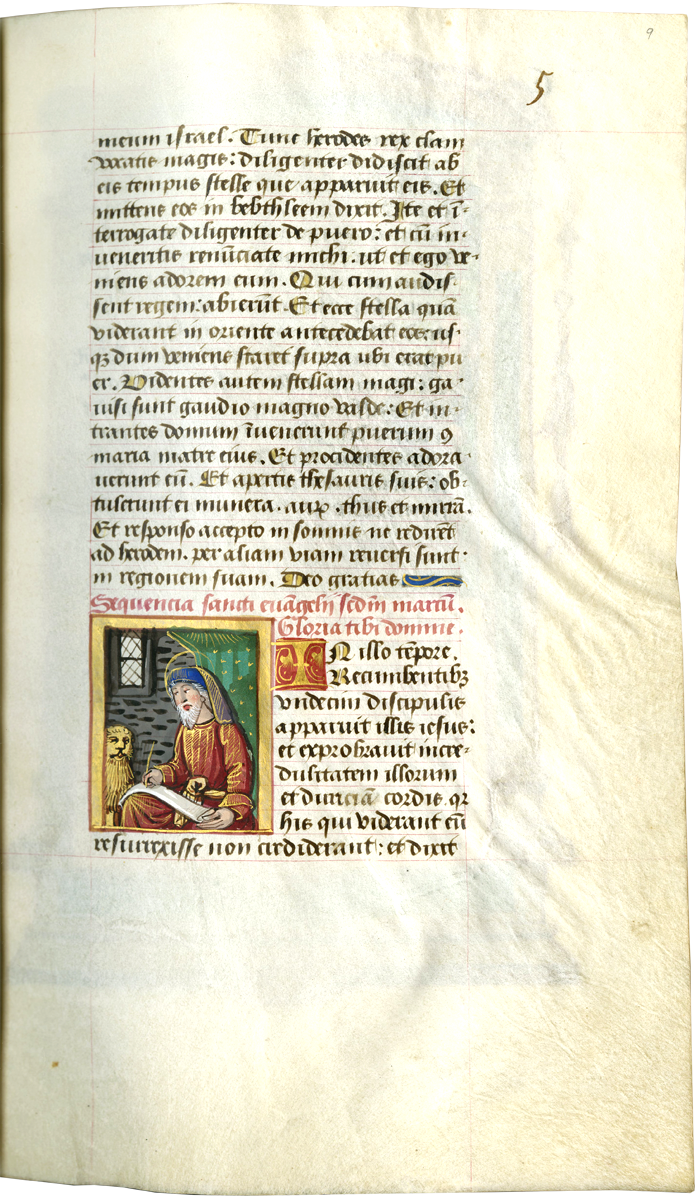 9
5
meum israel. Tunc herodes rex clam
vocatis magis: diligenter didiscit ab
eis tempus stelle que apparuit eis. Et
mittens eos in bebthleem dixit. Ite et ī-
terrogate diligenter de puero: et cū in-
ueneritis renūciate michi. ut et ego ve-
niens adorem eum. Qui cum audis-
sent regem: abierūt. Et ecce stella quā
viderant in oriente antecedebat eos: us-
qꝫ dum veniens staret supra ubi erat pu
er. Videntes autem stellam magi: ga-
uisi sunt gaudio magno valde: Et in-
trantes domum īuenerunt puerum ꝯ
maria matre eius. Et procidentes adora-
uerunt eū. Et apertis thesauris suis: ob-
tulerunt ei munera. auꝝ. thus et mirrā.
Et responso accepto in somnis ne redirēt
ad herodem. per aliam viam reuersi sunt
in regionem suam. Deo gratias
Sequencia sancti euāgelii sedm̄ marcū.
Gloria tibi domine.
IN illo tēpore.
Recumbentibꝫ
vndecim discipulis
apparuit illis iesus:
et exprobrauit incre-
dulitatem illorum
et duriciā cordis. qr
hiis qui viderant eū
resurrexisse non crediderant: et dixit